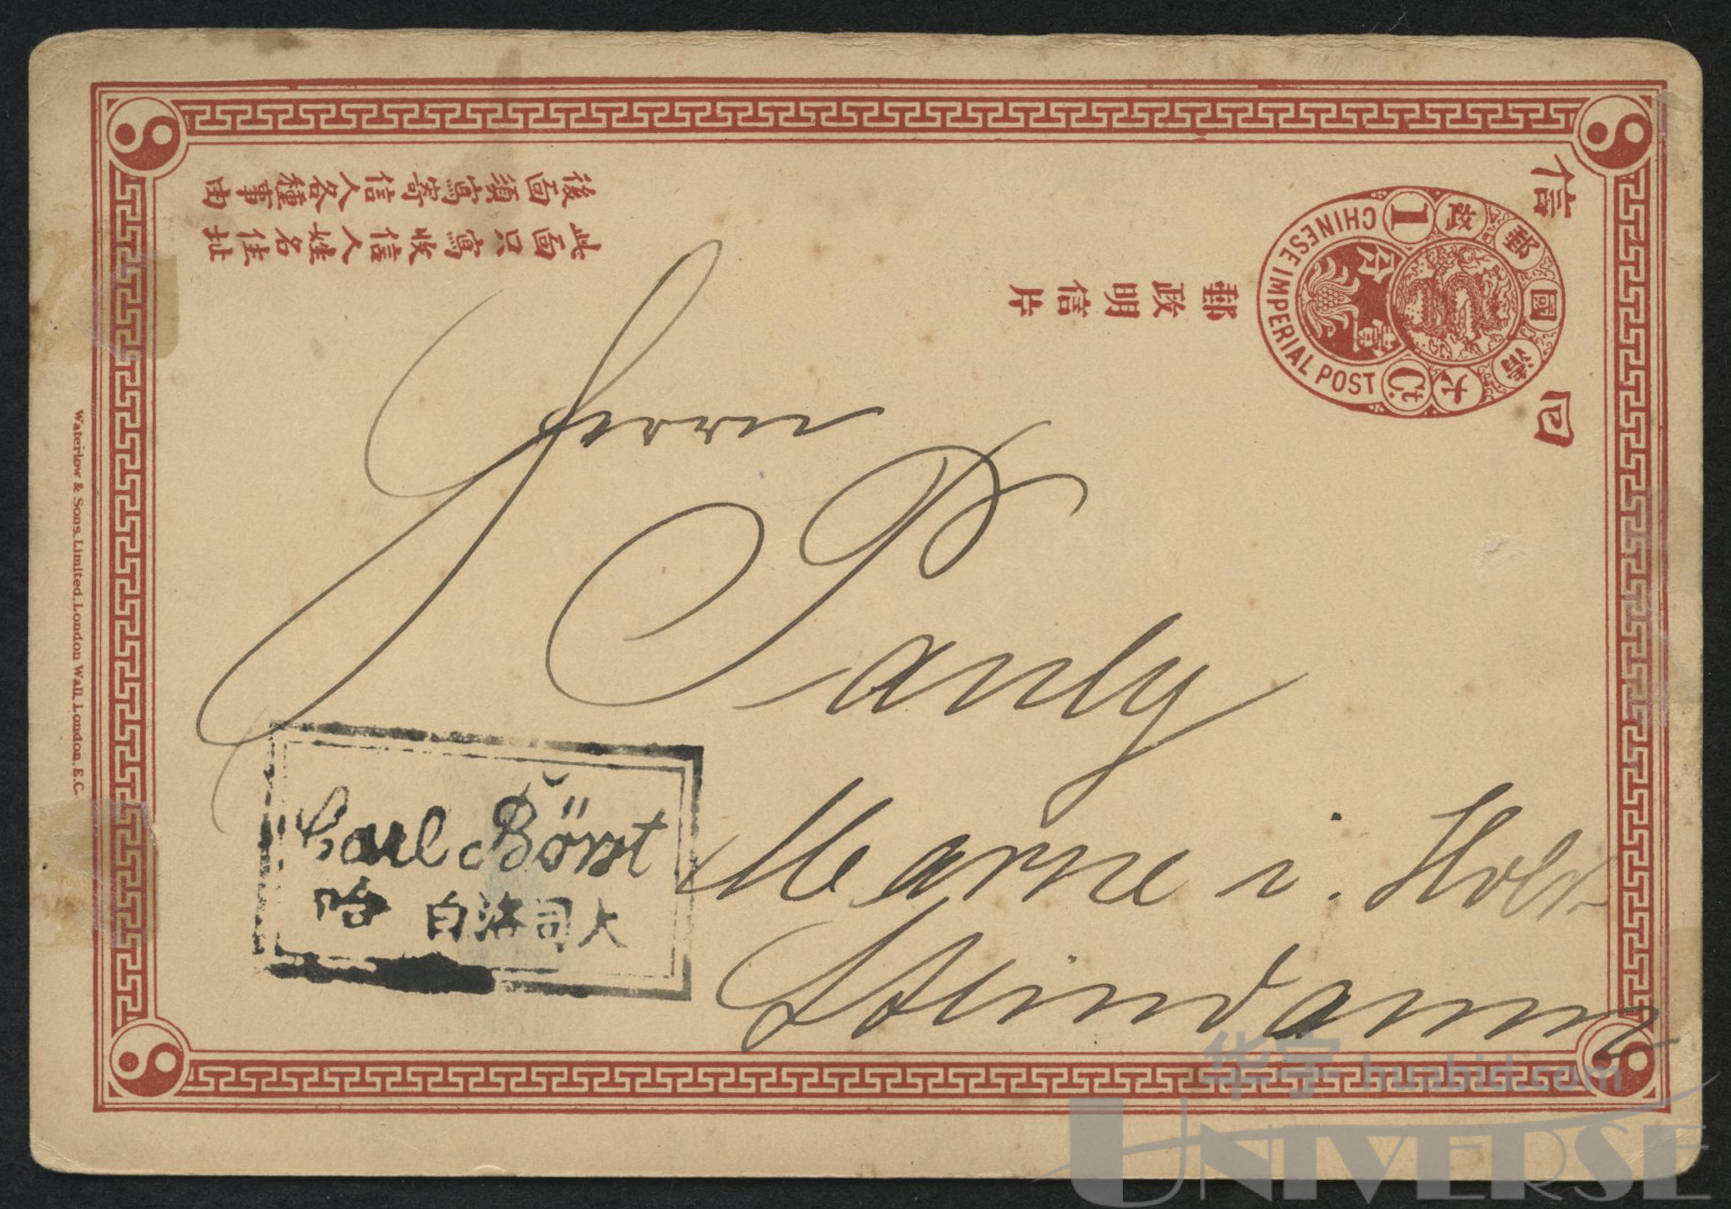 信
回
大清國郵政
1 Ct.
壹分
CHINESE IMPERIAL POST
郵政明信片
此面只寫收信人姓名住址
後面須寫寄信人各種事由
Herrn
Pauly
Marne i. Holst.
Carl Börst
哈 白洛司大
Waterlow & Sons, Limited, London Wall, London, E.C.
华宇 huabid.com
UNIVERSE